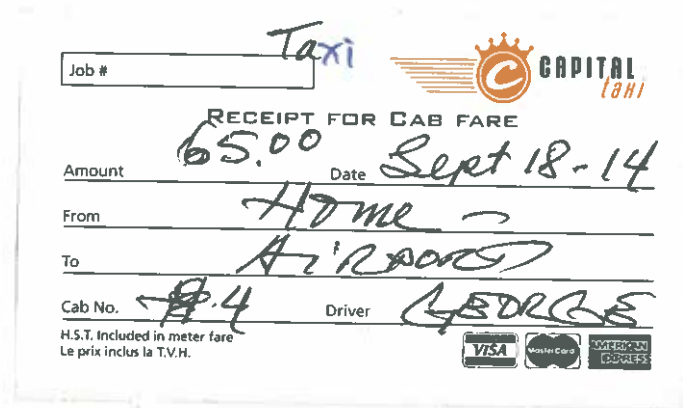 Taxi
Job #
CAPITAL
taxi
RECEIPT FOR CAB FARE
Amount 65.00 Date Sept 18-14
From Home -
To AIRPORT
Cab No. #.4 Driver GEORGE
H.S.T. Included in meter fare
Le prix inclus la T.V.H.
VISA MasterCard AMERICAN EXPRESS